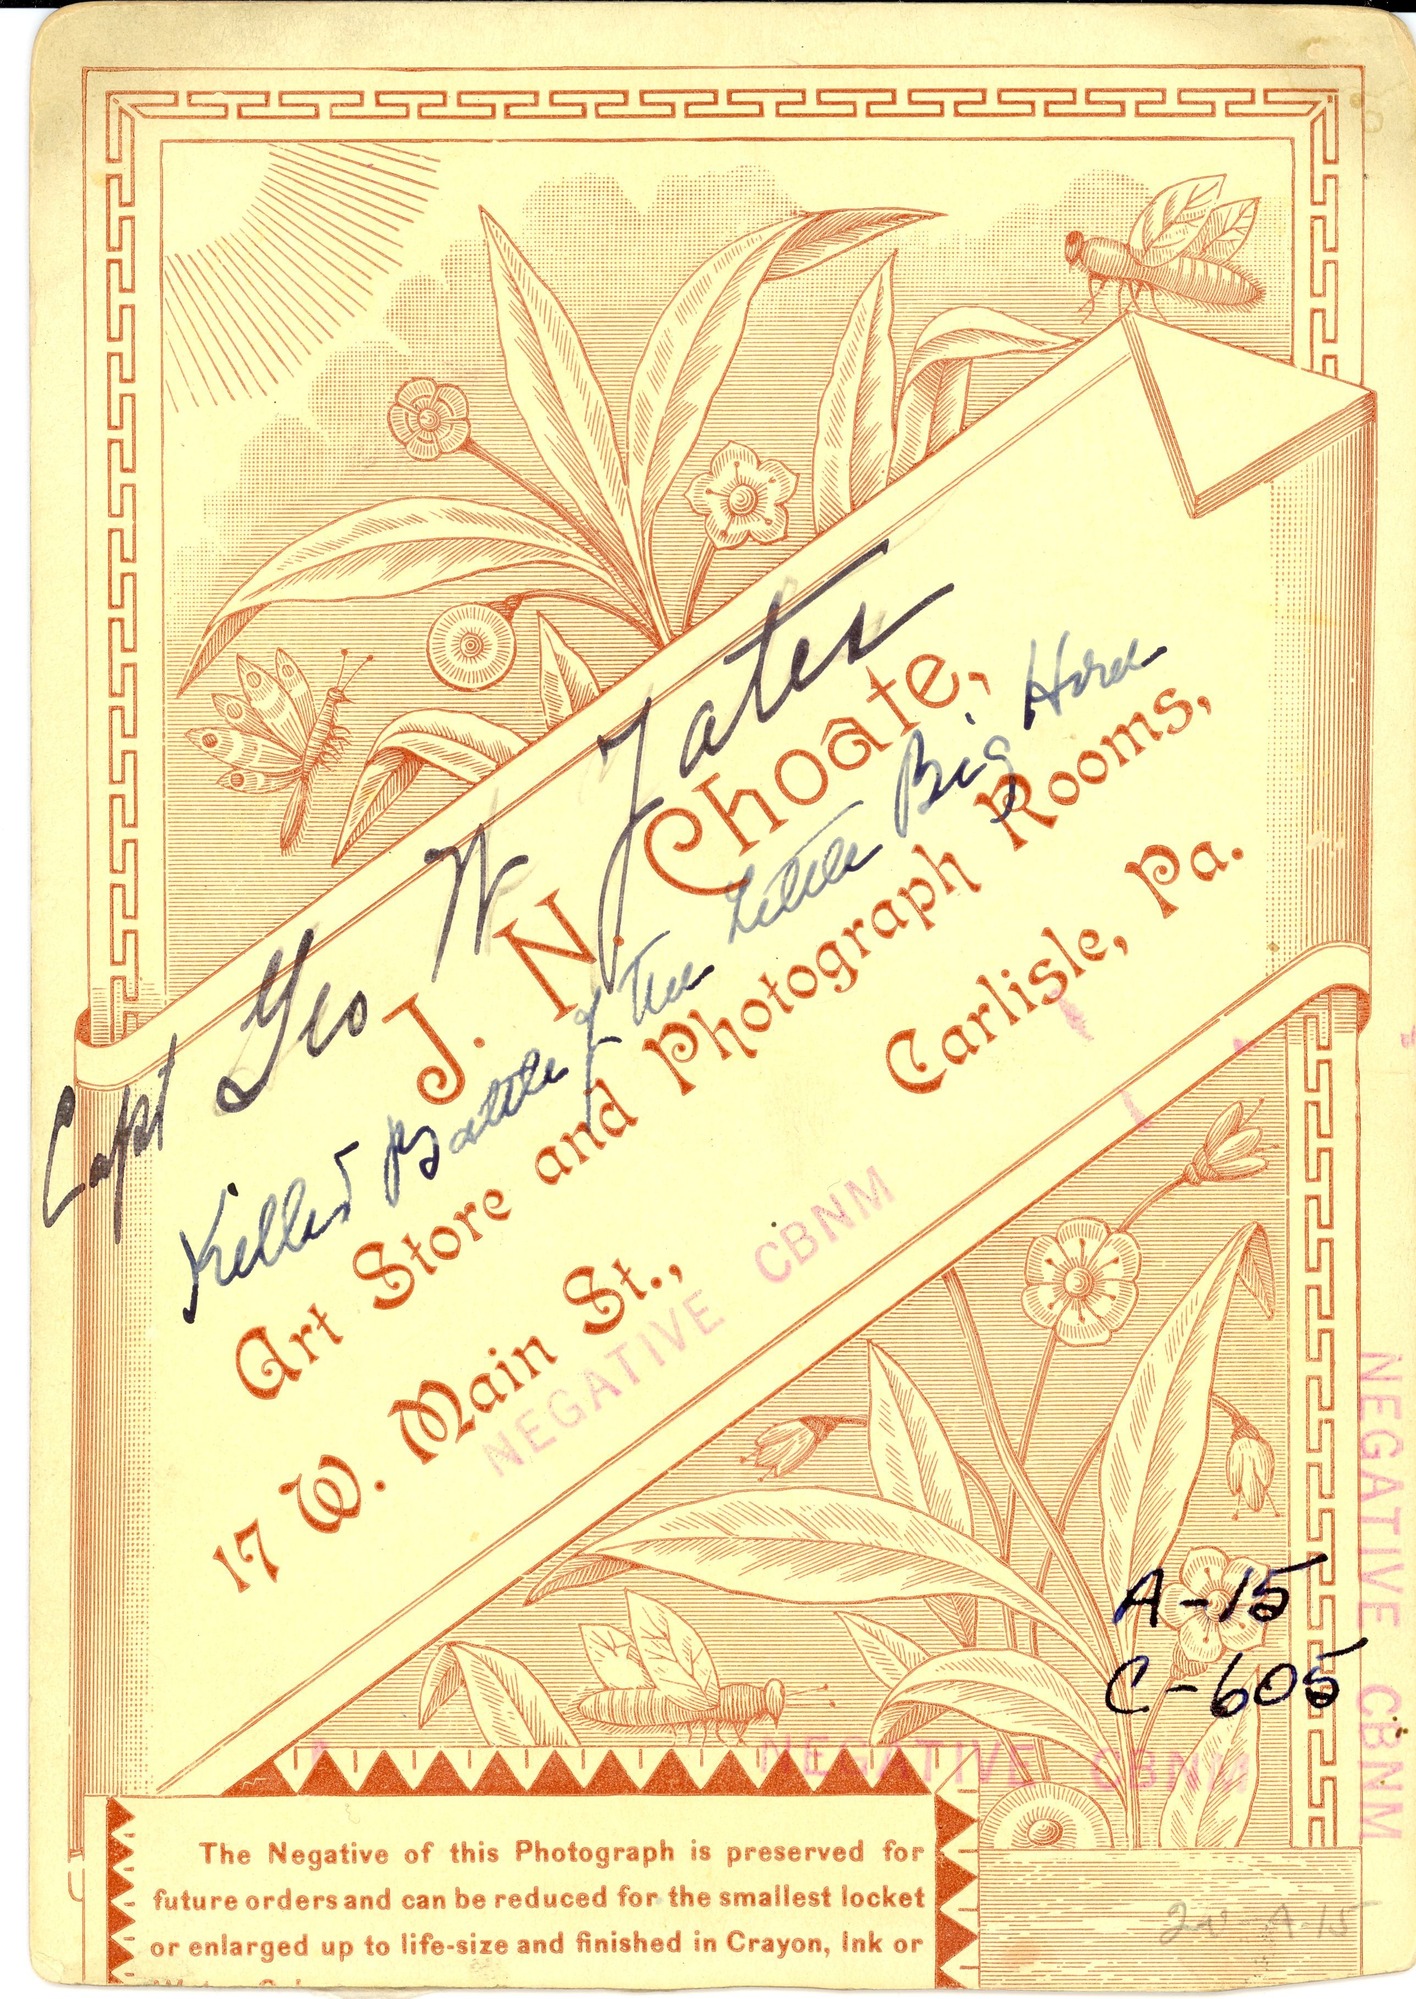 Capt Geo W Yates
Killed Battle of The Little Big Horn
J. N. Choate,
Art Store and Photograph Rooms,
17 W. Main St., Carlisle, Pa.
NEGATIVE CBNM
A-15
C-605
NEGATIVE CBNM
NEGATIVE CBNM
The Negative of this Photograph is preserved for
future orders and can be reduced for the smallest locket
or enlarged up to life-size and finished in Crayon, Ink or
A-15